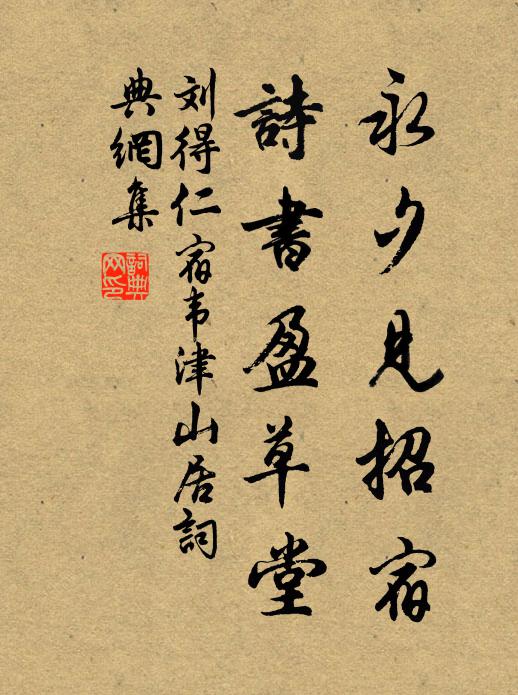 永夕见招宿
詩書盈草堂
刘得仁宿韦津山居詞
典網集
詞典
网印